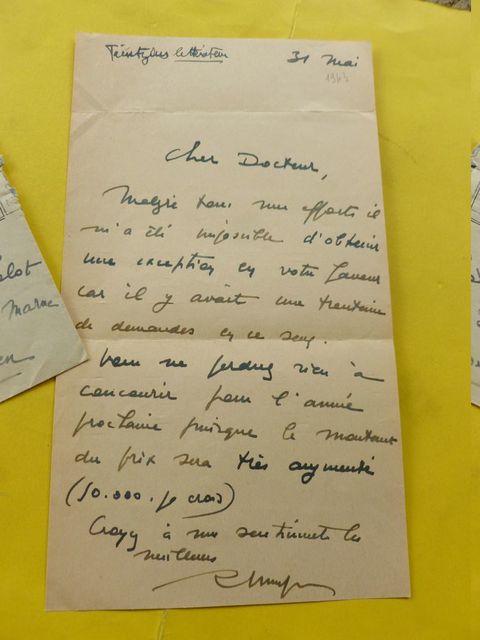 31 Mai
1943
Cher Docteur,
Malgré tous mes efforts il
m'a été impossible d'obtenir
une exception en votre faveur
car il y avait une trentaine
de demandes en ce sens.
Vous ne perdrez rien à
concourir pour l'année
prochaine puisque le montant
du prix sera très augmenté
(50.000. je crois)
Croyez à mes sentiments les
meilleurs
Marne